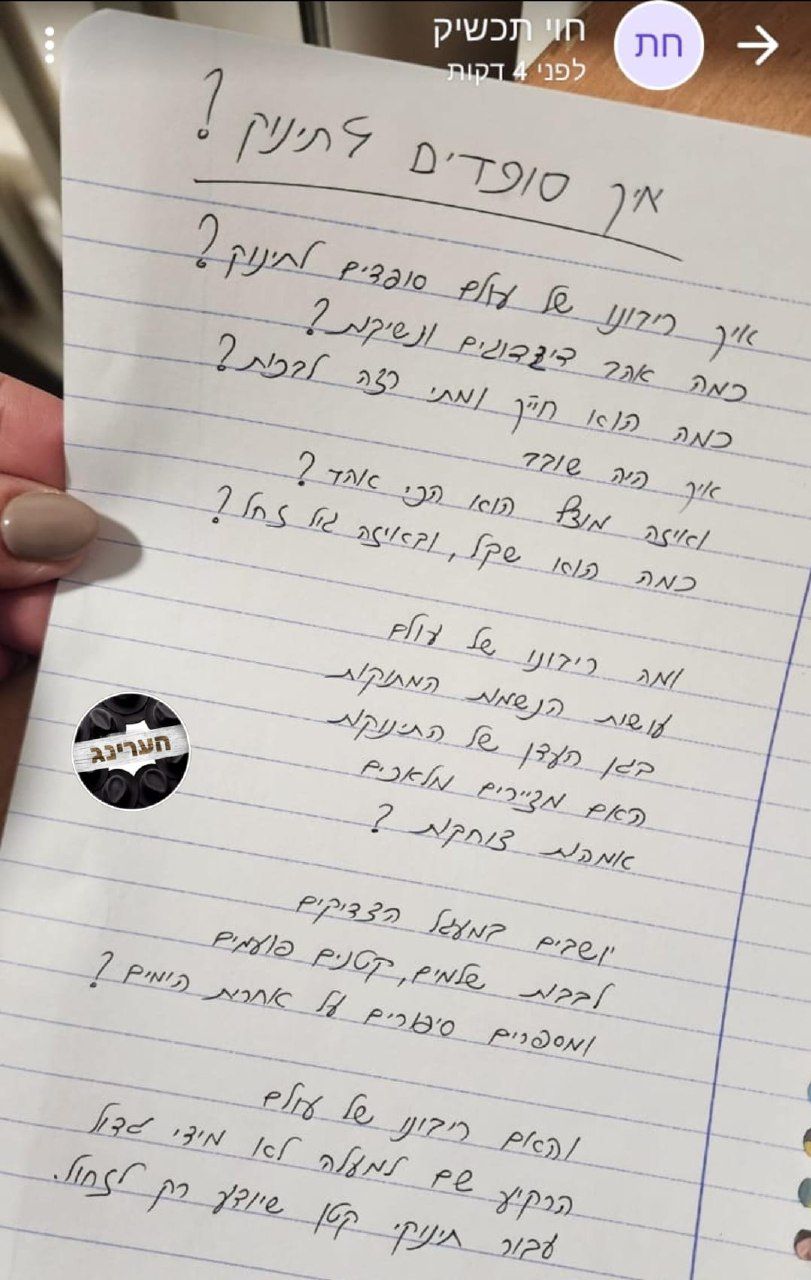 חוי תכשיק
חת
לפני 4 דקות
איך סופדים לתינוק?
איך ריבונו של עולם סופדים לתינוק?
כמה אהב דיגדוגים ונשיקות?
כמה הוא חייך ומתי רצה לבכות?
איך היה שובב
ואיזה מוצץ הוא הכי אהב?
כמה הוא שקל, ובאיזה גיל זחל?
ומה ריבונו של עולם
עושות הנשמות המתוקות
בגן העדן של התינוקות
האם מציירים מלאכים
אמהות צוחקות?
יושבים במעגל הצדיקים
לבבות שלמים, קטנים פועמים
ומספרים סיפורים על אחרית הימים?
והאם ריבונו של עולם
הרקיע שם למעלה לא מידי גדול
עבור תינוקי קטן שיודע רק לזחול.
הערינג